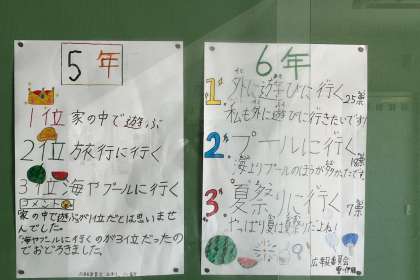 5年
1位 家の中で遊ぶ
2位 旅行に行く
3位 海やプールに行く
コメント
家の中で遊ぶが1位だとは思いませ
んでした。
海やプールに行くのが3位だったの
でおどろきました。
6年
1位 外に遊びに行く 25票
私も外に遊びに行きたいです!
2位 プールに行く
海よりプールのほうが多かったです
3位 夏祭りに行く 7票
やっぱり夏は夏祭りだよね!
広報委員会